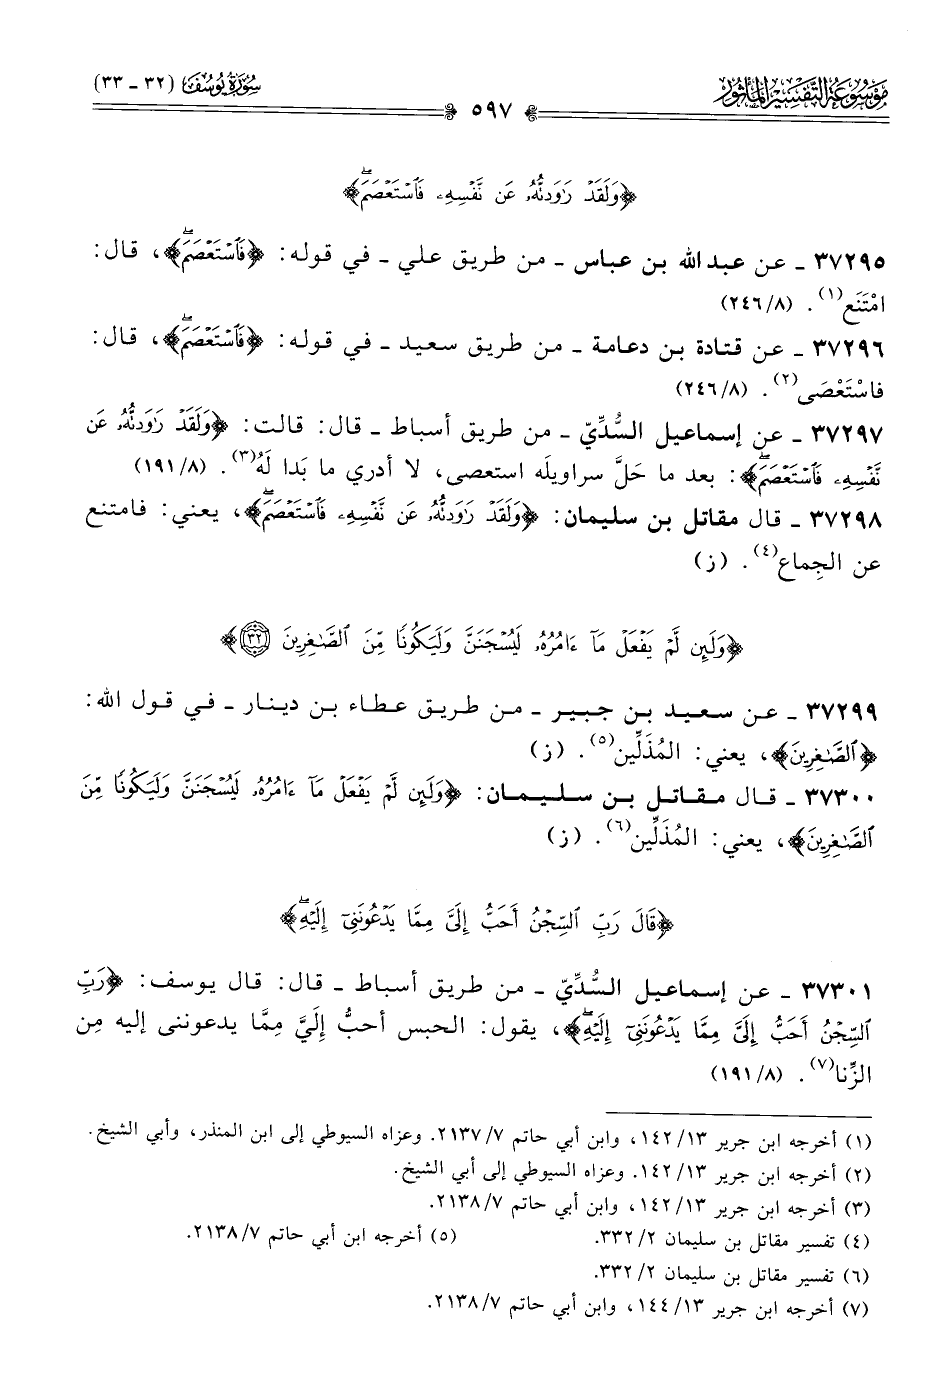 موسوعة التفسير المأثور
سورة يوسف (٣٢ - ٣٣)
٥٩٧
﴿وَلَقَدْ رَٰوَدتُّهُۥ عَن نَّفْسِهِۦ فَٱسْتَعْصَمَۖ﴾
٣٧٢٩٥ ـ عن عبد الله بن عباس ـ من طريق علي ـ في قوله: ﴿فَٱسْتَعْصَمَۖ﴾، قال:
امْتَنَع(١). (٨/٢٤٦)
٣٧٢٩٦ ـ عن قتادة بن دعامة ـ من طريق سعيد ـ في قوله: ﴿فَٱسْتَعْصَمَۖ﴾، قال:
فاسْتَعْصَى(٢). (٨/٢٤٦)
٣٧٢٩٧ ـ عن إسماعيل السُّدِّيّ ـ من طريق أسباط ـ قال: قالت: ﴿وَلَقَدْ رَٰوَدتُّهُۥ عَن
نَّفْسِهِۦ فَٱسْتَعْصَمَۖ﴾: بعد ما حَلَّ سراويلَه استعصى، لا أدري ما بَدا لَهُ(٣). (٨/١٩١)
٣٧٢٩٨ ـ قال مقاتل بن سليمان: ﴿وَلَقَدْ رَٰوَدتُّهُۥ عَن نَّفْسِهِۦ فَٱسْتَعْصَمَۖ﴾، يعني: فامتنع
عن الجِماع(٤). (ز)
﴿وَلَئِن لَّمْ يَفْعَلْ مَآ ءَامُرُهُۥ لَيُسْجَنَنَّ وَلَيَكُونًا مِّنَ ٱلصَّـٰغِرِينَ ٣٢﴾
٣٧٢٩٩ ـ عن سعيد بن جبير ـ من طريق عطاء بن دينار ـ في قول الله:
﴿ٱلصَّـٰغِرِينَ﴾، يعني: المُذَلِّين(٥). (ز)
٣٧٣٠٠ ـ قال مقاتل بن سليمان: ﴿وَلَئِن لَّمْ يَفْعَلْ مَآ ءَامُرُهُۥ لَيُسْجَنَنَّ وَلَيَكُونًا مِّنَ
ٱلصَّـٰغِرِينَ﴾، يعني: المُذَلِّين(٦). (ز)
﴿قَالَ رَبِّ ٱلسِّجْنُ أَحَبُّ إِلَىَّ مِمَّا يَدْعُونَنِىٓ إِلَيْهِۖ﴾
٣٧٣٠١ ـ عن إسماعيل السُّدِّيّ ـ من طريق أسباط ـ قال: قال يوسف: ﴿رَبِّ
ٱلسِّجْنُ أَحَبُّ إِلَىَّ مِمَّا يَدْعُونَنِىٓ إِلَيْهِۖ﴾، يقول: الحبس أحبُّ إِلَيَّ مِمَّا يدعوننى إليه مِن
الزِّنا(٧). (٨/١٩١)
(١) أخرجه ابن جرير ١٣/١٤٢، وابن أبي حاتم ٧/٢١٣٧. وعزاه السيوطي إلى ابن المنذر، وأبي الشيخ.
(٢) أخرجه ابن جرير ١٣/١٤٢. وعزاه السيوطي إلى أبي الشيخ.
(٣) أخرجه ابن جرير ١٣/١٤٢، وابن أبي حاتم ٧/٢١٣٨.
(٤) تفسير مقاتل بن سليمان ٢/٣٣٢.
(٥) أخرجه ابن أبي حاتم ٧/٢١٣٨.
(٦) تفسير مقاتل بن سليمان ٢/٣٣٢.
(٧) أخرجه ابن جرير ١٣/١٤٤، وابن أبي حاتم ٧/٢١٣٨.